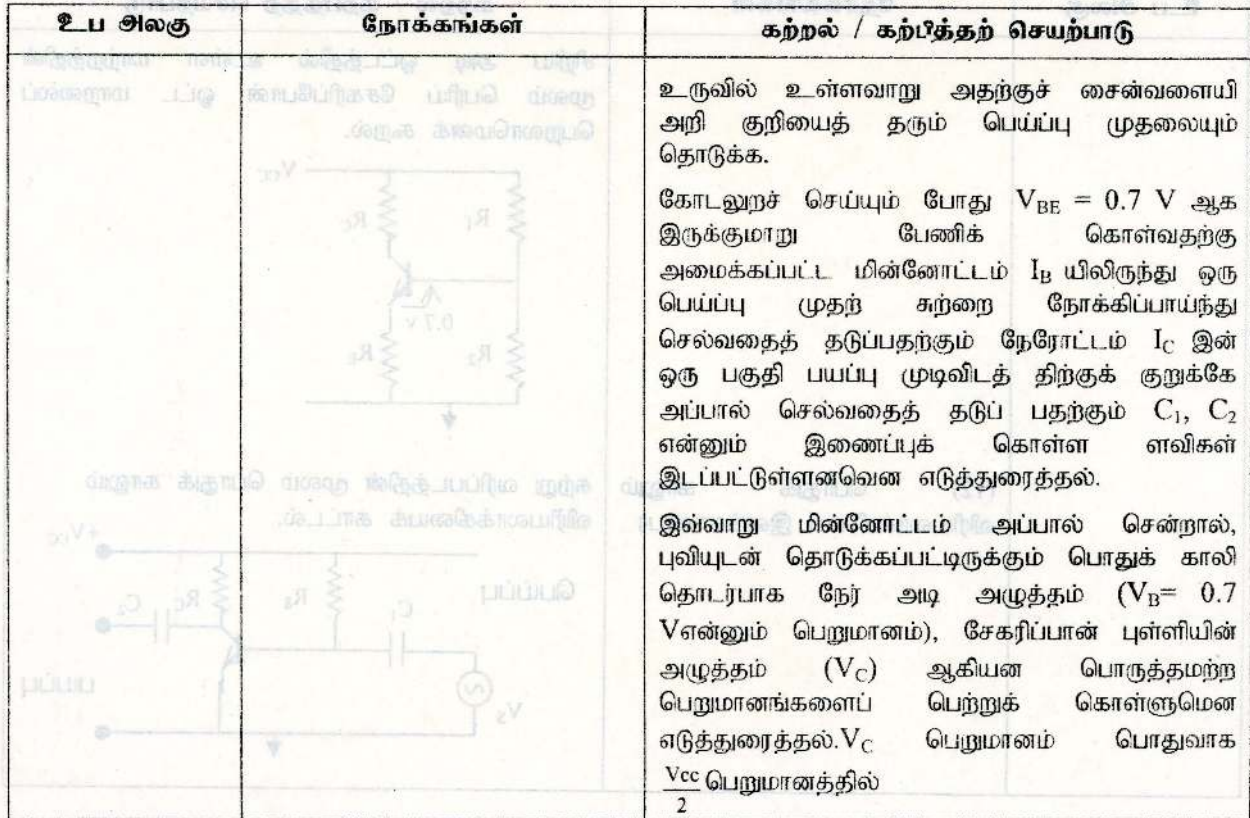 உப அலகு
நோக்கங்கள்
கற்றல் / கற்பித்தற் செயற்பாடு
உருவில் உள்ளவாறு அதற்குச் சைன்வளையி
அறி குறியைத் தரும் பெய்ப்பு முதலையும்
தொடுக்க.
கோடலுறச் செய்யும் போது V_BE = 0.7 V ஆக
இருக்குமாறு பேணிக் கொள்வதற்கு
அமைக்கப்பட்ட மின்னோட்டம் I_B யிலிருந்து ஒரு
பெய்ப்பு முதற் சுற்றை நோக்கிப்பாய்ந்து
செல்வதைத் தடுப்பதற்கும் நேரோட்டம் I_C இன்
ஒரு பகுதி பயப்பு முடிவிடத் திற்குக் குறுக்கே
அப்பால் செல்வதைத் தடுப் பதற்கும் C₁, C₂
என்னும் இணைப்புக் கொள்ள ளவிகள்
இடப்பட்டுள்ளனவென எடுத்துரைத்தல்.
இவ்வாறு மின்னோட்டம் அப்பால் சென்றால்,
புவியுடன் தொடுக்கப்பட்டிருக்கும் பொதுக் காலி
தொடர்பாக நேர் அடி அழுத்தம் (V_B= 0.7
Vஎன்னும் பெறுமானம்), சேகரிப்பான் புள்ளியின்
அழுத்தம் (V_C) ஆகியன பொருத்தமற்ற
பெறுமானங்களைப் பெற்றுக் கொள்ளுமென
எடுத்துரைத்தல்.V_C பெறுமானம் பொதுவாக
Vcc/2 பெறுமானத்தில்